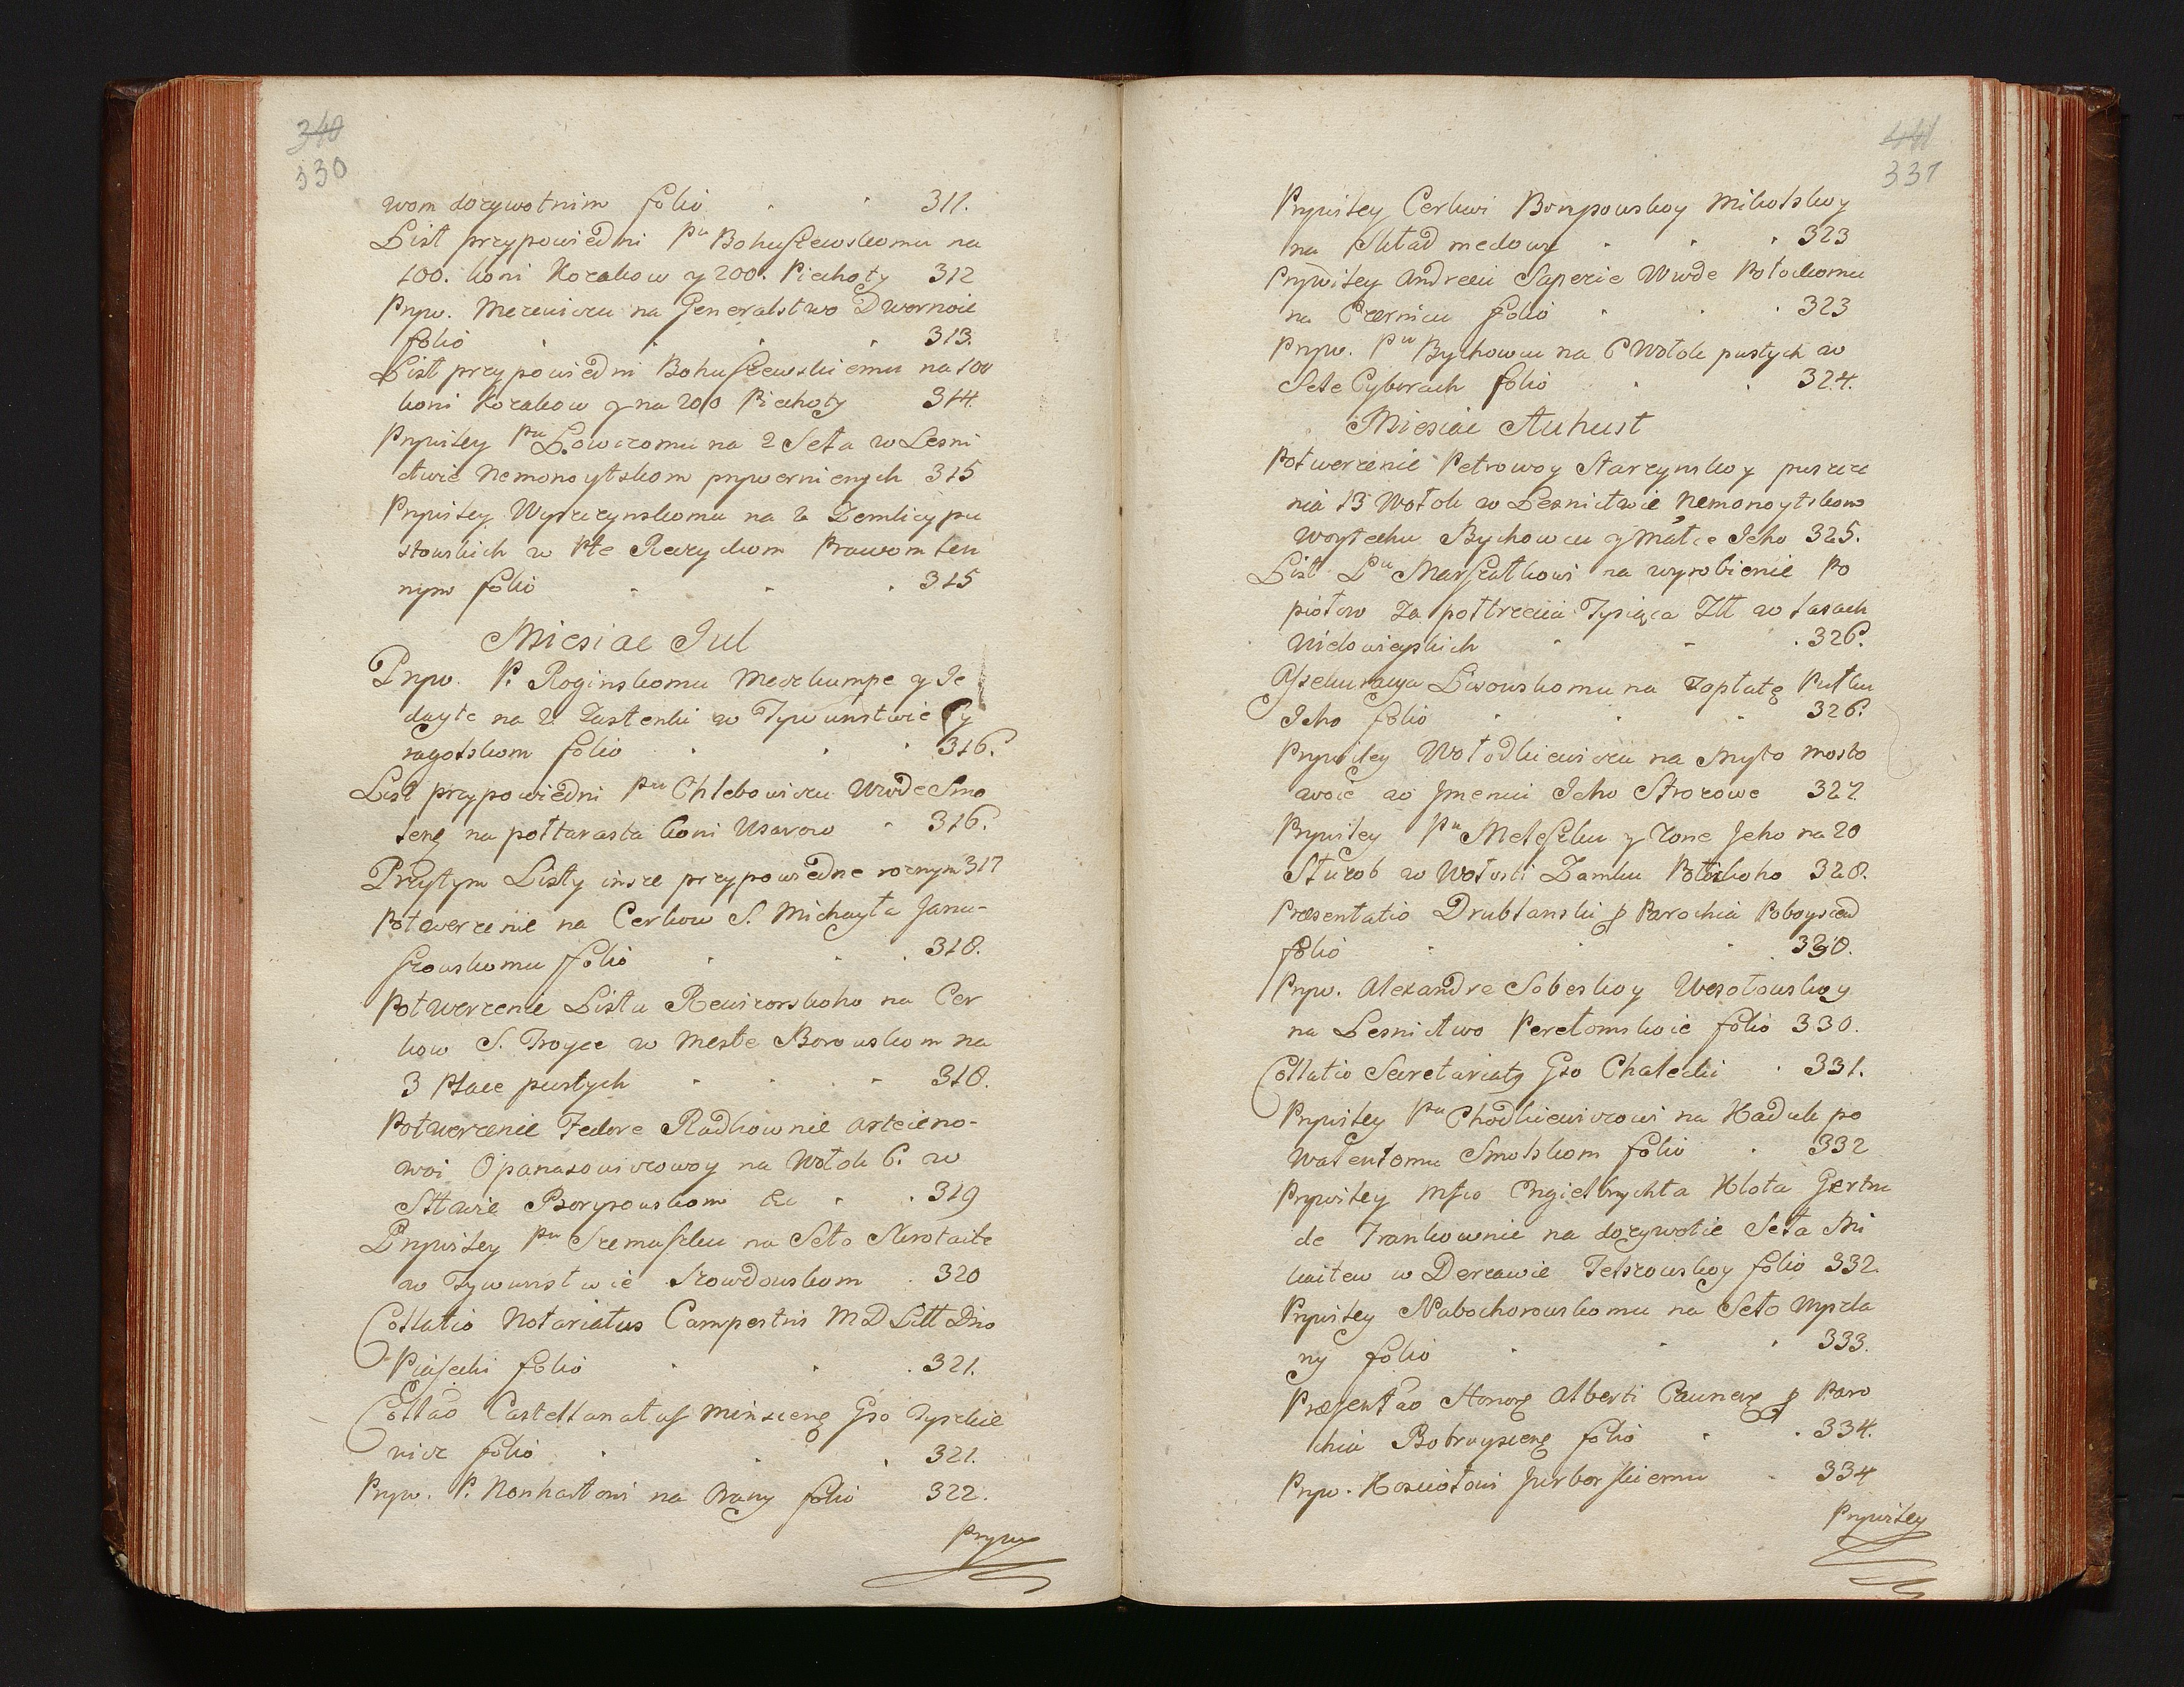 340
330
wom dozywotnim folio 311.
List przypowiedni Pu Bohuszewskomu na
100. koni Kozakow y 200. Piechoty 312
Pryw. Mezewiczu na Generalstwo Dwornoie
folio 313.
List przypowiedni Bohuszewskiemu na 100
koni Kozakow y na 200 Piechoty 314.
Prywiley Pu Łowczomu na 2 Seła w Lesni
ctwie Nemonoytskom prywernienych 315
Prywiley Wyszczynskomu na 2 Zemlicy pu
stowskich w Pte Reczyckom Prawom Len
nym folio 315
Miesiac Jul
Pryw. P. Roginskomu Meczkumpe y Je
dayte na 2 Zastenki w Tywunstwie Cy
ragolskom folio 316.
List przypowiedni Pu Chlebowiczu Wwde Smo
leng na połtarasta koni Usarow 316.
Przytym Listy insze przypowiedne roznym 317
Potwerzenie na Cerkow S. Michayła Janu-
szowskomu folio 318.
Potwerzenie Listu Rewizorskoho na Cer
kow S. Troyce w Meste Borowskom na
3 Place pustych 318.
Potwerzenie Fedore Radkownie Artcieno-
woi Opanasowiczowoy na Wołok 6. w
Sttwie Borysowskom &c 319
Prywiley Pu Szemaszku na Seło Skrotaite
w Tywunstwie Szowdowskom 320
Collatio Notariatus Campestris MD Litt Dno
Piasecki folio 321.
Collao Castellanatus Minsceng Gso Tyszkie
wicz folio 321.
Pryw. P. Nonhartowi na Orany folio 322.
Pryw
441
331
Prywiley Cerkwi Borysowskoy Mikolskoy
na Skład medowy 323
Prywiley Andreiu Sapezie Wwde Połockomu
na Czernicu folio 323
Pryw. Pu Bychowcu na 6 Wołok pustych w
Sele Cyborach folio 324.
Miesiac Auhust
Potwerzenie Petrowoy Starzynskoy puszcze
nia 13 Wołok w Lesnictwie Nemonoytskom
Woytechu Bychowcu y Matce Jeho 325.
List Pu Marszałkowi na wyrobienie Po
piołow za połtrzecia Tysiąca Złł w lasach
326.
Assekuracya Lisowskomu na zapłatę Pułku
Jeho folio 326.
Prywiley Wołodkiewiczu na Myto mosto
woie w Jmeniu Jeho Strozowe 327
Prywiley Pu Meleszku y Zone Jeho na 20
Służob w Wołosti Zamku Połockoho 328.
Præsentatio Drublanski p Parochia Poboyscen
folio 330.
Pryw. Alexandre Sobeskoy Wesołowskoy
na Lesnictwo Perełomskoie folio 330.
Collatio Secretariatg Gso Chalecki 331.
Prywiley Pu Chodkiewiczowi na Haduk po
Walentomu Smolskom folio 332
Prywiley Mscio Engielbrychta Kłota Gertru
de Frankownie na dozywotie Seła Mi
kaitew w Derzawie Telszowskoy folio 332.
Prywiley Nabochorowskomu na Seło Upida
ny folio 333.
Præsentao Honorg Alberti Caunerg p Paro
chia Bobruysceng folio 334.
Pryw. Kosciołowi Jurborskiemu 334
Prywiley